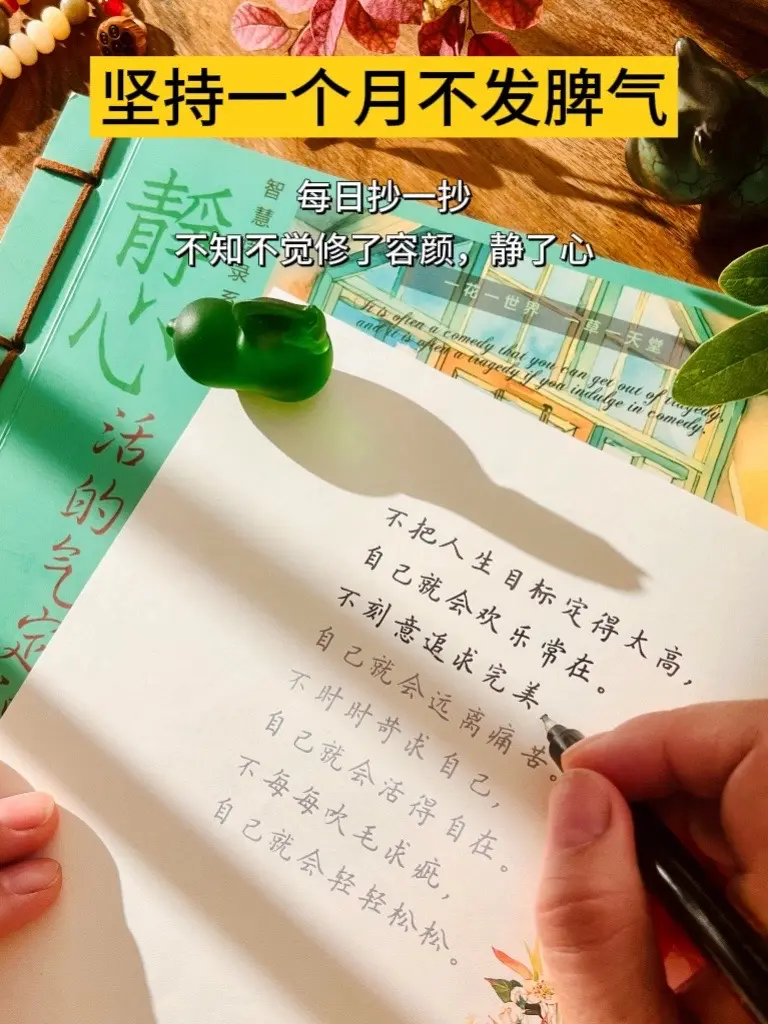 坚持一个月不发脾气
每日抄一抄
不知不觉修了容颜，静了心
静心
智慧
录
活的气定
一花一世界 一草一天堂
It is often a comedy that you can get out of tragedy,
and it is often a tragedy if you indulge in comedy.
不把人生目标定得太高，
自己就会欢乐常在。
不刻意追求完美
自己就会远离痛苦。
不时时苛求自己，
自己就会活得自在。
不每每吹毛求疵，
自己就会轻轻松松。